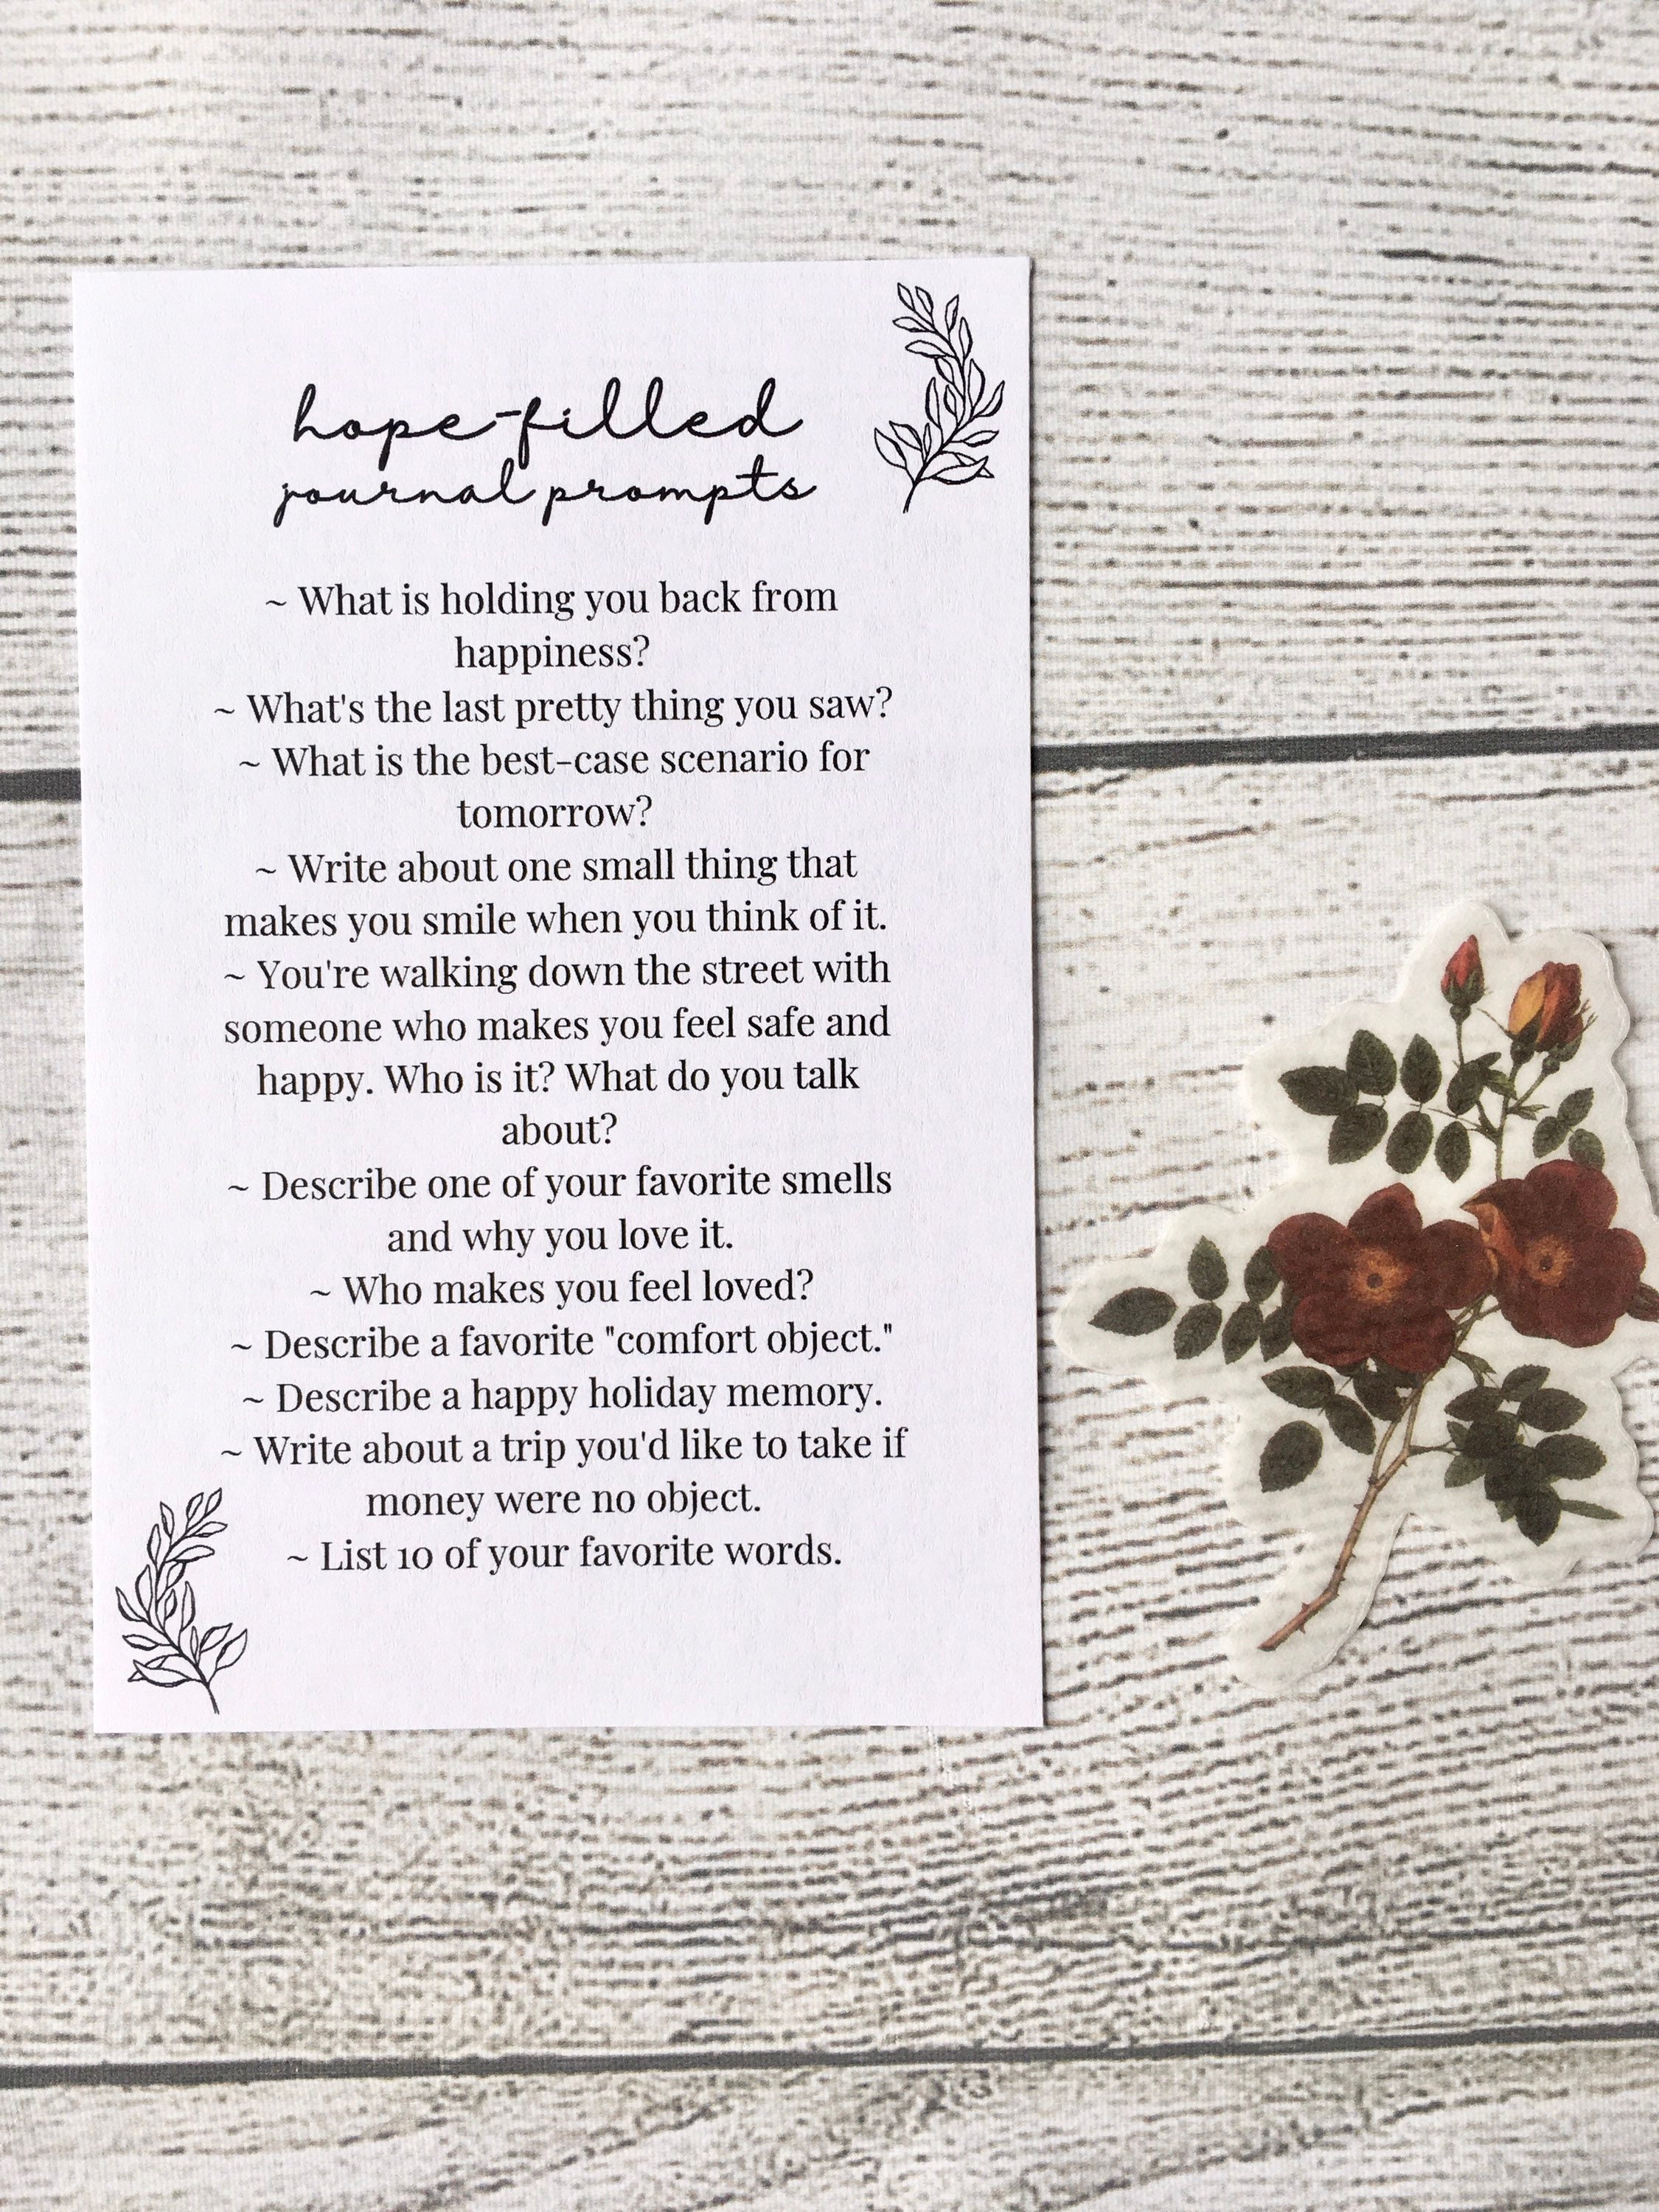 hope-filled
journal prompts
~ What is holding you back from
happiness?
~ What's the last pretty thing you saw?
~ What is the best-case scenario for
tomorrow?
~ Write about one small thing that
makes you smile when you think of it.
~ You're walking down the street with
someone who makes you feel safe and
happy. Who is it? What do you talk
about?
~ Describe one of your favorite smells
and why you love it.
~ Who makes you feel loved?
~ Describe a favorite "comfort object."
~ Describe a happy holiday memory.
~ Write about a trip you'd like to take if
money were no object.
~ List 10 of your favorite words.